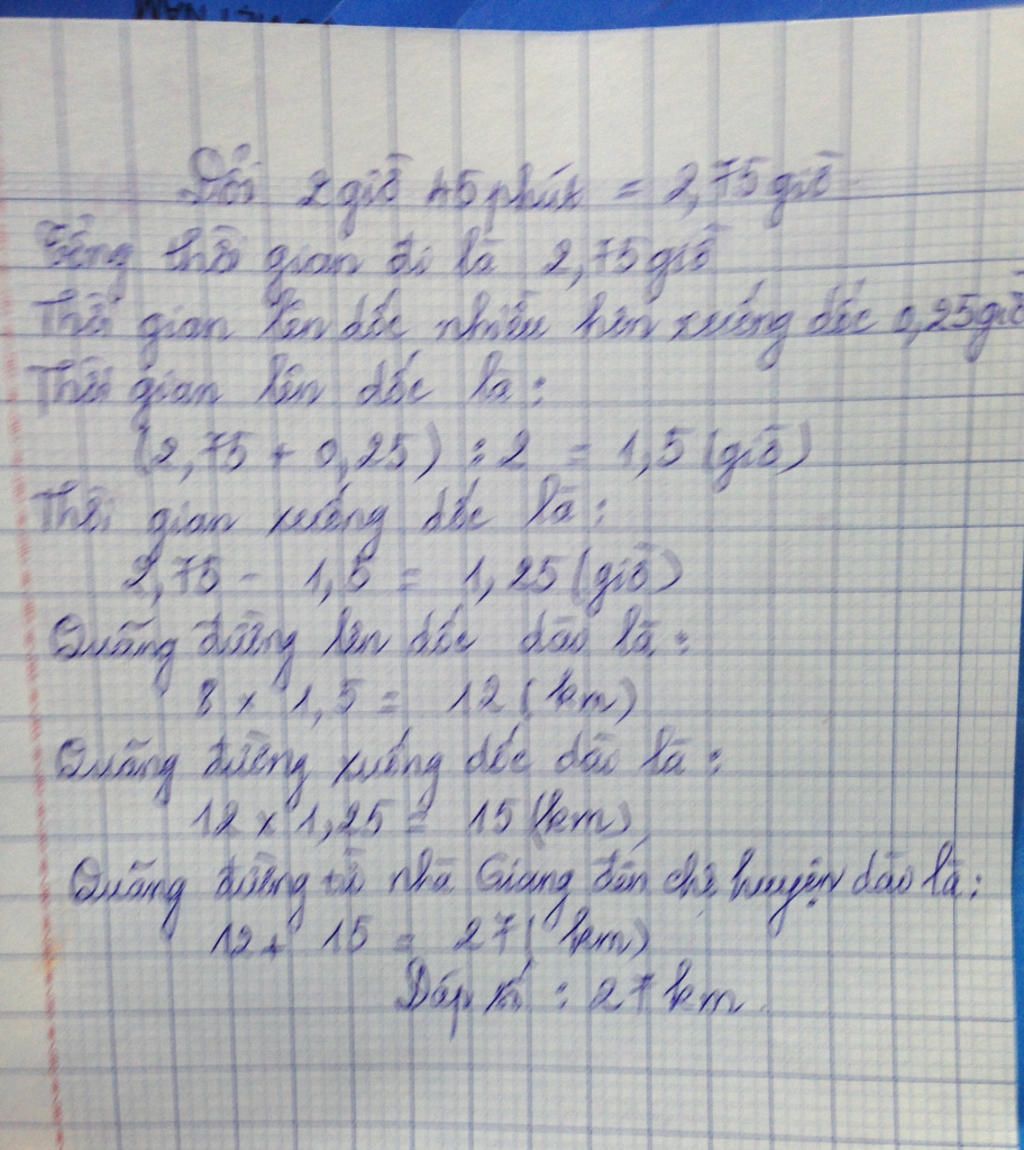 VIỆT NAM
Đổi 2 giờ 45 phút = 2,75 giờ
Tổng thời gian đi là 2,75 giờ
Thời gian lên dốc nhiều hơn xuống dốc 0,25 giờ
Thời gian lên dốc là :
(2,75 + 0,25) : 2 = 1,5 (giờ)
Thời gian xuống dốc là :
2,75 - 1,5 = 1,25 (giờ)
Quãng đường lên dốc dài là :
8 x 1,5 = 12 (km)
Quãng đường xuống dốc dài là :
12 x 1,25 = 15 (km)
Quãng đường từ nhà Giang đến chợ huyện dài là :
12 + 15 = 27 (km)
Đáp số : 27 km.